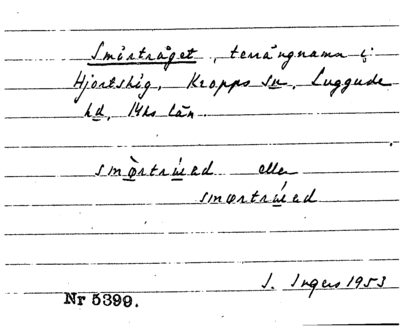 Smörtråget, terrängnamn i
Hjortshög, Kropps sn, Luggude
hd, Mhs län.
smörtråed eller
smørtråed
I. Ingers 1953
Nr 5399.